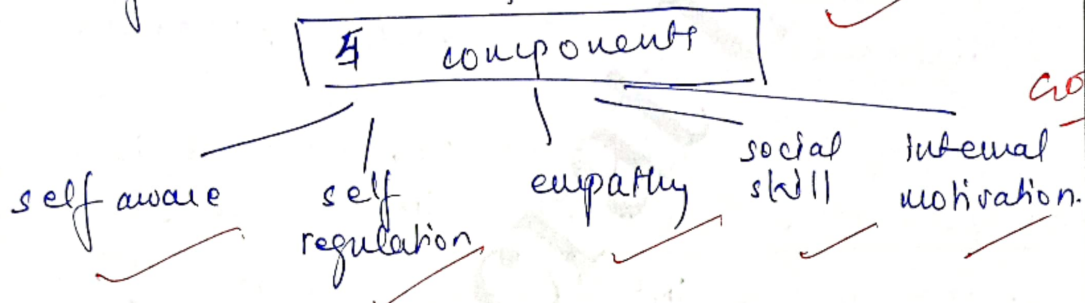 5 components
self aware
self
regulation
empathy
social
skill
internal
motivation.